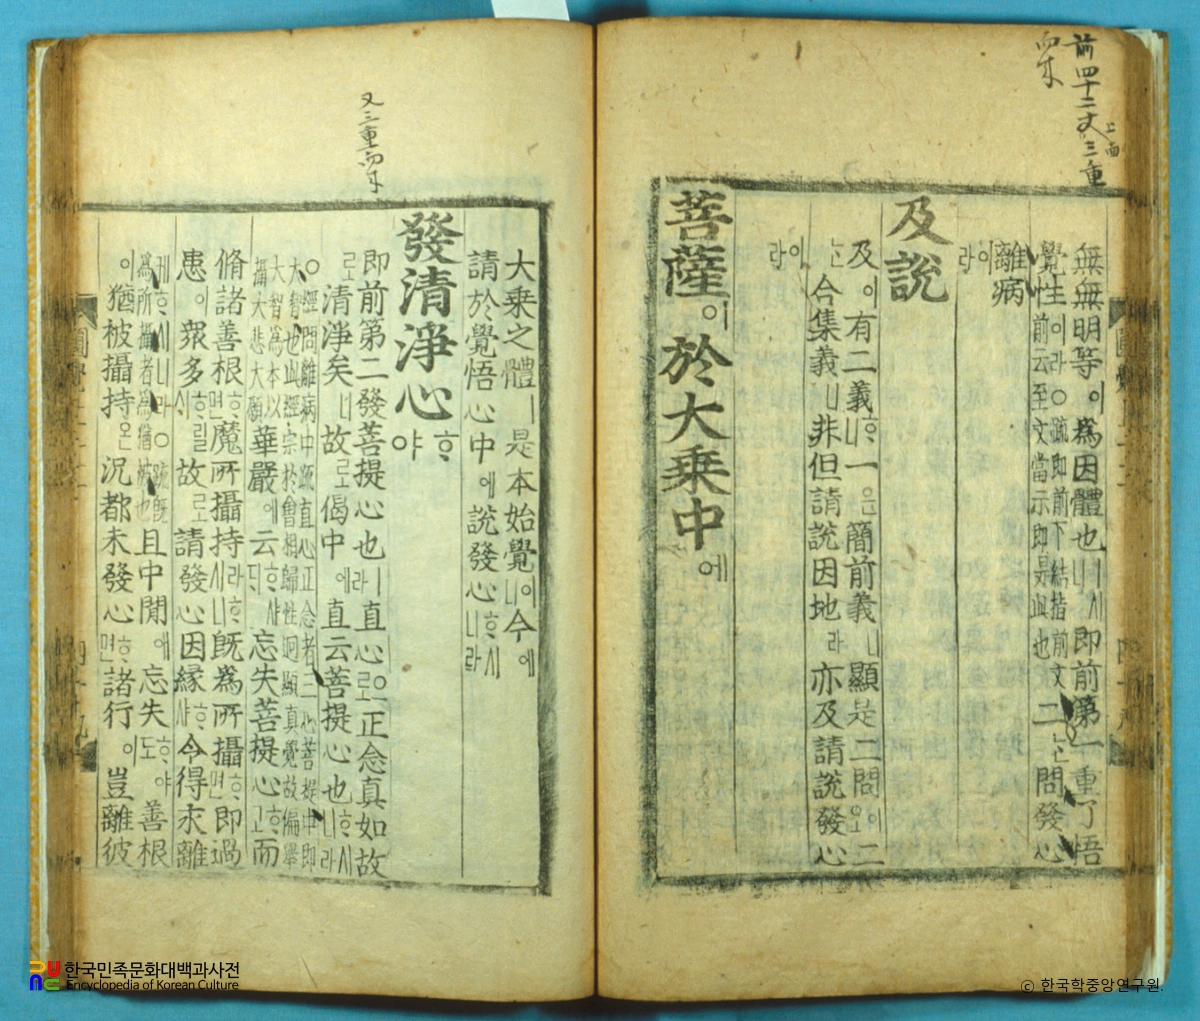 前四十二丈上面三重
無無明等이為因體也ㅣ니시即前第一重了悟
覺性이라○䟽即前下結指前文
性前云至文當示即是此也 二는問發心
離病
이라
及說
及이有二義ᄒᆞ니一은簡前義ㅣ니顯是二問이오二
는合集義니非但請說因地라亦及請說發心
이라
菩薩이於大乘中에
大乘之體ㅣ是本始覺이니今에
請於覺悟心中에說發心ᄒᆞ시니라
發清淨心ᄒᆞ야
即前第二發菩提心也ㅣ라直心로正念真如故
로清淨矣니故로偈中에直云菩提心也ᄒᆞ시니라
○經問離病中䟽直心正念者三心菩提中即
大智也此經宗於會相歸性逈顯真覺故偏舉
大智為本以
攝大悲大願 華嚴에云ᄒᆞ샤ᄃᆡ忘失菩提心ᄒᆞ고而
脩諸善根ᄒᆞ면魔所攝持라ᄒᆞ시니旣為所攝ᄒᆞ면即過
患이衆多ᄒᆞ릴ᄉᆡ故로請發心因緣ᄒᆞ샤今得求離
케ᄒᆞ시니라○䟽旣
為所攝者為猶被也 且中間에忘失ᄒᆞ야도善根
이猶被攝持온況都未發心ᄒᆞ면諸行이豈離彼
又三重
圓覺
한국민족문화대백과사전
Encyclopedia of Korean Culture
© 한국학중앙연구원.